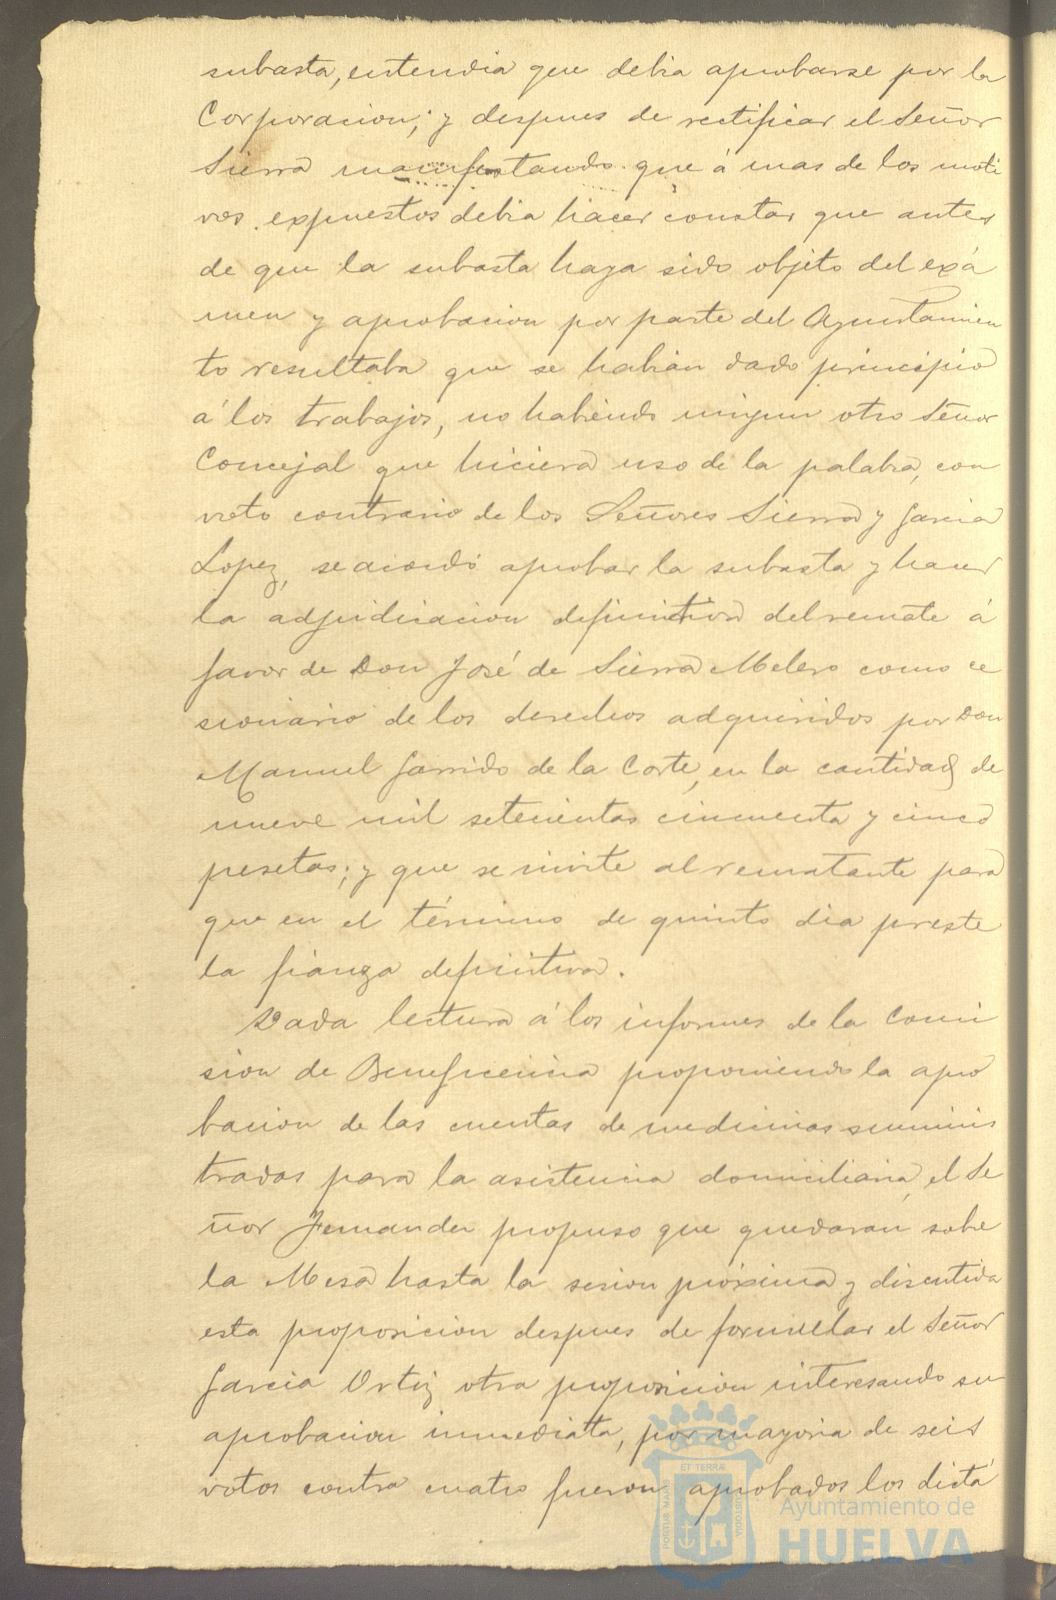 subasta, entendia que debia aprobarse por la
Corporacion; y despues de rectificar el Señor
Sierra manifestando que á mas de los moti
vos expuestos debia hacer constar que antes
de que la subasta haya sido objeto del exá
men y aprobacion por parte del Ayuntamien
to resultaba que se habian dado principio
á los trabajos, no habiendo ningun otro Señor
Concejal que hiciera uso de la palabra, con
voto contrario de los Señores Sierra y Garcia
Lopez, se acordó aprobar la subasta y hacer
la adjudicacion definitiva del remate á
favor de Don José de Sierra Melero como ce
sionario de los derechos adquiridos por Don
Manuel Garrido de la Corte, en la cantidad de
nueve mil setecientas cincuenta y cinco
pesetas; y que se invite al rematante para
que en el término de quinto dia preste
la fianza definitiva.
Dada lectura á los informes de la Comi
sion de Beneficencia proponiendo la apro
bacion de las cuentas de medicinas suminis
tradas para la asistencia domiciliaria, el Se
ñor Fernandez propuso que quedaran sobre
la Mesa hasta la sesion próxima y discutida
esta proposicion despues de formular el Señor
Garcia Ortiz otra proposicion interesando su
aprobacion inmediata, por mayoria de seis
votos contra cuatro fueron aprobados los dictá
ET TERRA
PORTUS MARIS
CUSTODIA
Ayuntamiento de
HUELVA